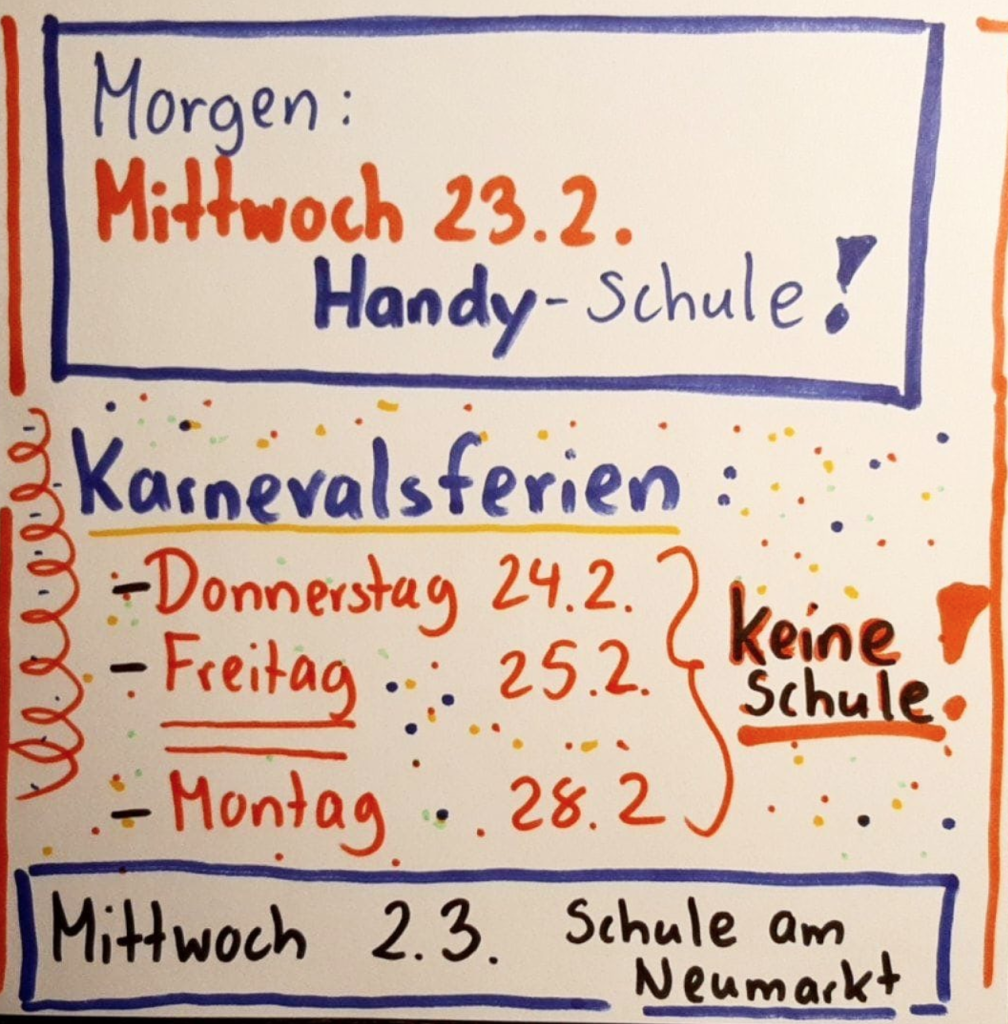 Morgen:
Mittwoch 23.2.
Handy-Schule!
Karnevalsferien:
-Donnerstag 24.2.
- Freitag 25.2.
- Montag 28.2
keine
Schule!
Mittwoch 2.3. Schule am
Neumarkt